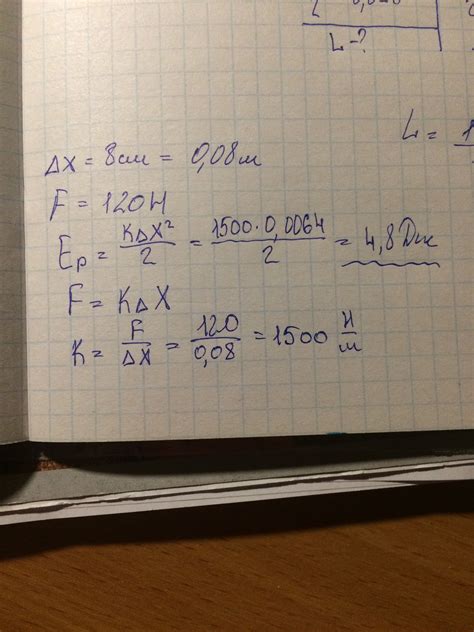 L-?
L =
Δx = 8 см = 0,08 м
F = 120 Н
Eр = КΔX²/2 = 1500·0,0064/2 = 4,8 Дж
F = КΔX
К = F/ΔX = 120/0,08 = 1500 Н/м